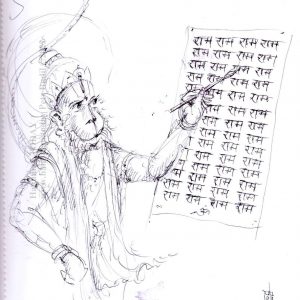 राम राम राम राम
राम राम राम राम
राम राम राम राम
राम राम राम राम
राम राम राम राम
राम राम राम
राम राम राम
राम राम राम राम
राम राम राम राम
राम राम राम राम
राम राम राम राम
राम राम राम राम
राम राम राम राम